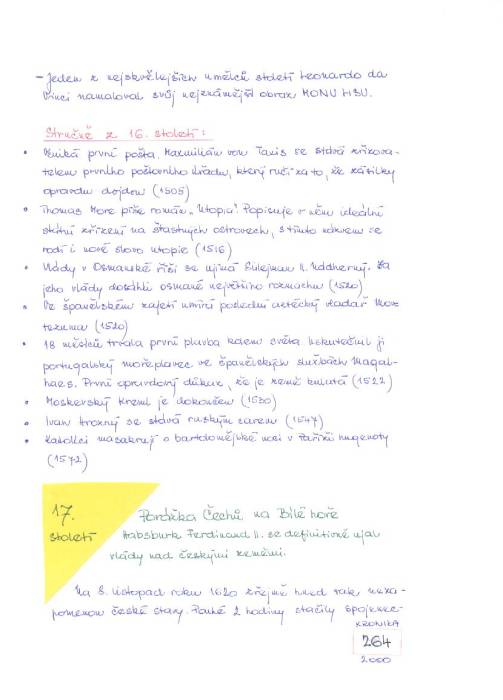 - Jeden z nejskvělejších umělců století Leonardo da
Vinci namaloval svůj nejznámější obraz MONU LISU.
Stručně z 16. století:
• Vzniká první pošta. Maxmilián von Taxis se stává zřizova-
telem prvního poštovního úřadu, který ručí za to, že zásilky
opravdu dojdou (1505)
• Thomas More píše román „Utopia". Popisuje v něm ideální
státní zřízení na šťastných ostrovech, s tímto názvem se
rodí i nové slovo utopie (1516)
• Vlády v Osmanské říši se ujímá Sülejman II. Nádherný. Za
jeho vlády dosáhli osmané největšího rozmachu (1520)
• Ve španělském zajetí umírá poslední aztécký vladař Mon-
tezuma (1520)
• 18 měsíců trvala první plavba kolem světa. Uskutečnil ji
portugalský mořeplavec ve španělských službách Magal-
haes. První opravdový důkaz, že je země kulatá (1522)
• Moskevský Kreml je dokončen (1530)
• Ivan Hrozný se stává ruským carem (1547)
• Katolíci masakrují o bartolomějské noci v Paříži hugenoty
(1572)
17.
století
Porážka Čechů na Bílé hoře
Habsburk Ferdinand II. se definitivně ujal
vlády nad českými zeměmi.
Na 8. listopad roku 1620 zřejmě hned tak neza-
pomenou české stavy. Pouhé 2 hodiny stačily spojenec-
KRONIKA
264
2000